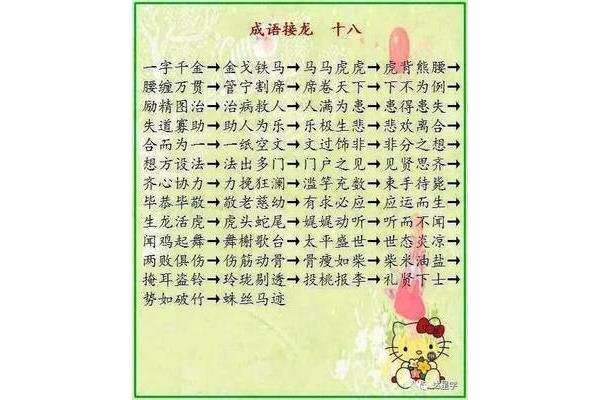 成语接龙 十八
一字千金→金戈铁马→马马虎虎→虎背熊腰→
腰缠万贯→管宁割席→席卷天下→下不为例→
励精图治→治病救人→人满为患→患得患失→
失道寡助→助人为乐→乐极生悲→悲欢离合→
合而为一→一纸空文→文过饰非→非分之想→
想方设法→法出多门→门户之见→见贤思齐→
齐心协力→力挽狂澜→滥竽充数→束手待毙→
毕恭毕敬→敬老慈幼→有求必应→应运而生→
生龙活虎→虎头蛇尾→娓娓动听→听而不闻→
闻鸡起舞→舞榭歌台→太平盛世→世态炎凉→
两败俱伤→伤筋动骨→骨瘦如柴→柴米油盐→
掩耳盗铃→玲珑剔透→投桃报李→礼贤下士→
势如破竹→蛛丝马迹